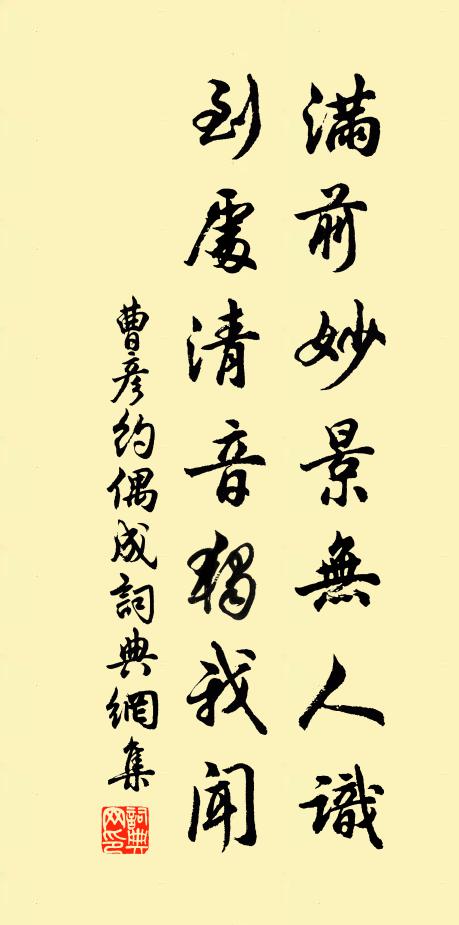 滿前妙景無人識
到處清音獨我聞
曹彥約偶成詞典網集
詞典網印